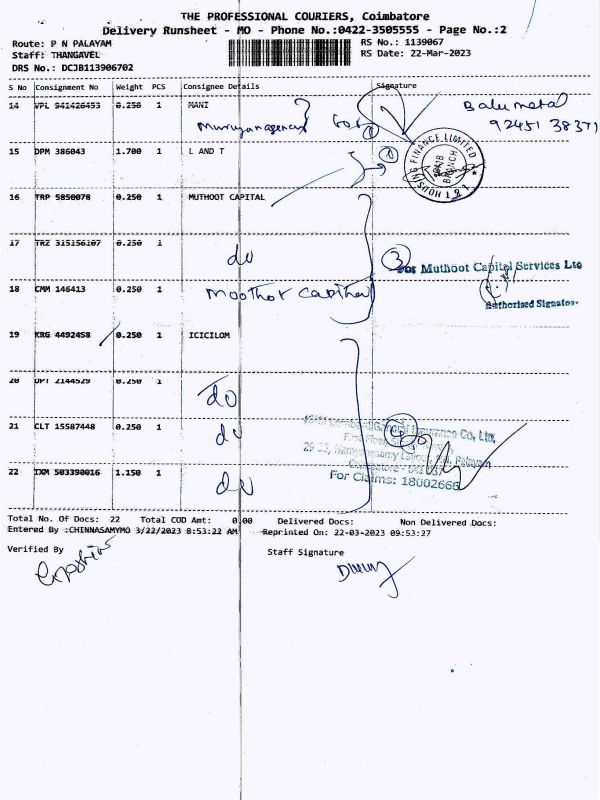 THE PROFESSIONAL COURIERS, Coimbatore
Delivery Runsheet - MO - Phone No.:0422-3505555 - Page No.:2
Route: P N PALAYAM
RS No.: 1139067
Staff: THANGAVEL
RS Date: 22-Mar-2023
DRS No.: DCJB113906702
S No Consignment No Weight PCS Consignee Details Signature
14 VPL 941426453 0.250 1 MANI
Balu metal
92451 38371
15 DPM 386043 1.700 1 L AND T
HOUSING FINANCE LIMITED
BRANCH
16 TRP 5850078 0.250 1 MUTHOOT CAPITAL
17 TRZ 315156107 0.250 1 do
3 For Muthoot Capital Services Ltd
18 CMM 146413 0.250 1 moothot capital
Authorised Signator
19 KRG 4492458 0.250 1 ICICILOM
20 DPT 2144529 0.250 1 do
21 CLT 15587448 0.250 1 do
Insurance Co, Ltd,
22 TXM 503390016 1.150 1 do
For Claims: 18002666
Total No. Of Docs: 22 Total COD Amt: 0.00 Delivered Docs: Non Delivered Docs:
Entered By :CHINNASAMYMO 3/22/2023 8:53:22 AM Reprinted On: 22-03-2023 09:53:27
Verified By
Staff Signature